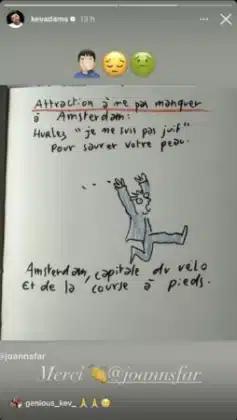 kevadams 13 h
Attraction à ne pas manquer
à Amsterdam:
Hurlez "je ne suis pas juif"
pour sauver votre peau.
Amsterdam, capitale du vélo
et de la course à pieds.
@joannsfar
Merci @joannsfar
genious_kev_